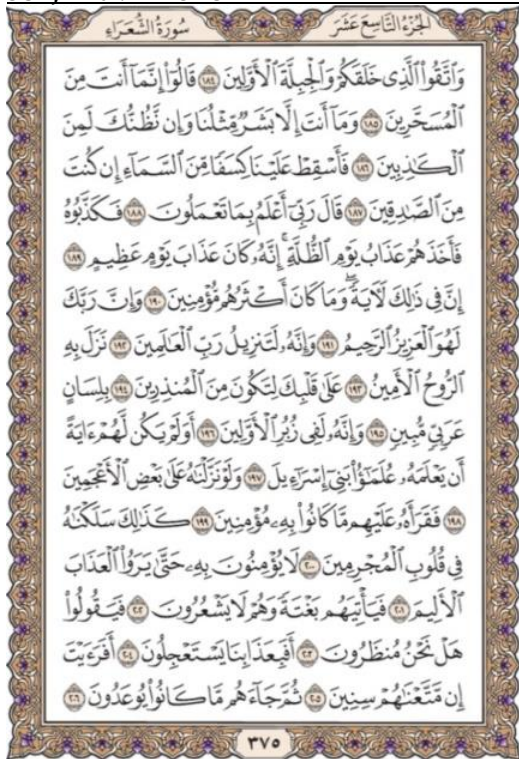 الجزء التاسع عشر
سورة الشعراء
وَاتَّقُوا الَّذِي خَلَقَكُمْ وَالْجِبِلَّةَ الْأَوَّلِينَ ١٨٤ قَالُوا إِنَّمَا أَنتَ مِنَ
الْمُسَحَّرِينَ ١٨٥ وَمَا أَنتَ إِلَّا بَشَرٌ مِّثْلُنَا وَإِن نَّظُنُّكَ لَمِنَ
الْكَاذِبِينَ ١٨٦ فَأَسْقِطْ عَلَيْنَا كِسَفًا مِّنَ السَّمَاءِ إِن كُنتَ
مِنَ الصَّادِقِينَ ١٨٧ قَالَ رَبِّي أَعْلَمُ بِمَا تَعْمَلُونَ ١٨٨ فَكَذَّبُوهُ
فَأَخَذَهُمْ عَذَابُ يَوْمِ الظُّلَّةِ ۚ إِنَّهُ كَانَ عَذَابَ يَوْمٍ عَظِيمٍ ١٨٩
إِنَّ فِي ذَٰلِكَ لَآيَةً ۖ وَمَا كَانَ أَكْثَرُهُم مُّؤْمِنِينَ ١٩٠ وَإِنَّ رَبَّكَ
لَهُوَ الْعَزِيزُ الرَّحِيمُ ١٩١ وَإِنَّهُ لَتَنزِيلُ رَبِّ الْعَالَمِينَ ١٩٢ نَزَلَ بِهِ
الرُّوحُ الْأَمِينُ ١٩٣ عَلَىٰ قَلْبِكَ لِتَكُونَ مِنَ الْمُنذِرِينَ ١٩٤ بِلِسَانٍ
عَرَبِيٍّ مُّبِينٍ ١٩٥ وَإِنَّهُ لَفِي زُبُرِ الْأَوَّلِينَ ١٩٦ أَوَلَمْ يَكُن لَّهُمْ ءَايَةً
أَن يَعْلَمَهُ عُلَمَٰٓؤُا۟ بَنِي إِسْرَٰٓءِيلَ ١٩٧ وَلَوْ نَزَّلْنَاهُ عَلَىٰ بَعْضِ الْأَعْجَمِينَ
١٩٨ فَقَرَأَهُ عَلَيْهِم مَّا كَانُوا بِهِ مُؤْمِنِينَ ١٩٩ كَذَٰلِكَ سَلَكْنَاهُ
فِي قُلُوبِ الْمُجْرِمِينَ ٢٠٠ لَا يُؤْمِنُونَ بِهِ حَتَّىٰ يَرَوُا الْعَذَابَ
الْأَلِيمَ ٢٠١ فَيَأْتِيَهُم بَغْتَةً وَهُمْ لَا يَشْعُرُونَ ٢٠٢ فَيَقُولُوا
هَلْ نَحْنُ مُنظَرُونَ ٢٠٣ أَفَبِعَذَابِنَا يَسْتَعْجِلُونَ ٢٠٤ أَفَرَءَيْتَ
إِن مَّتَّعْنَاهُمْ سِنِينَ ٢٠٥ ثُمَّ جَاءَهُم مَّا كَانُوا يُوعَدُونَ ٢٠٦
٣٧٥